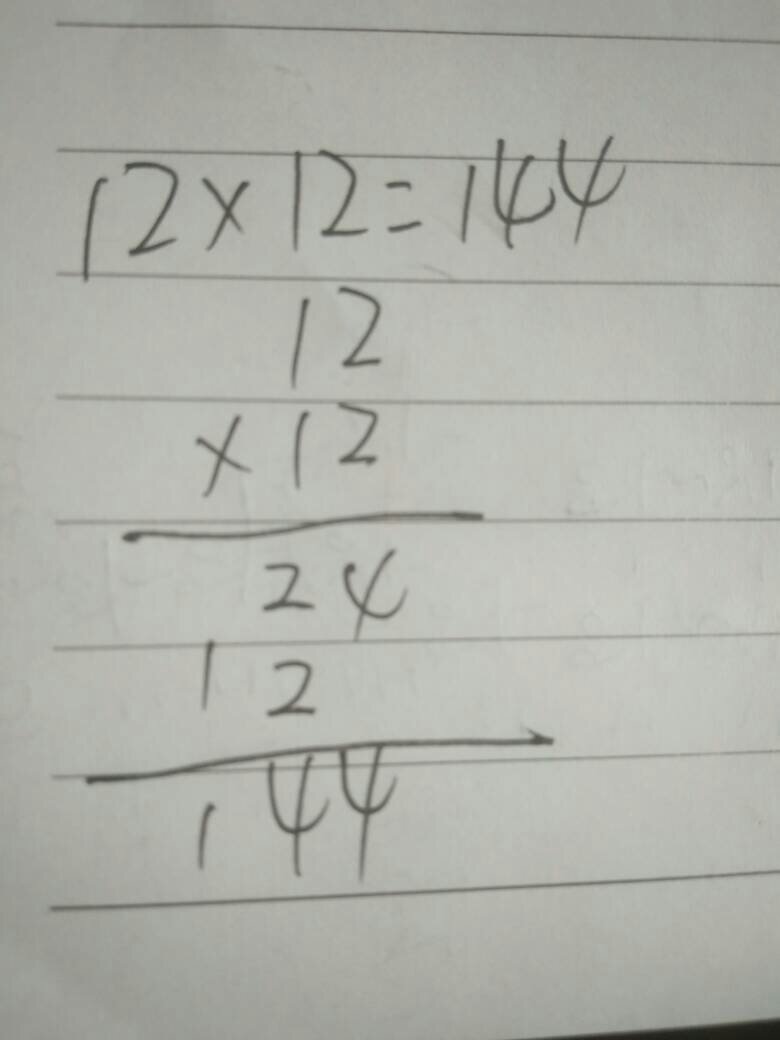 12×12=144
12
×12
24
12
144